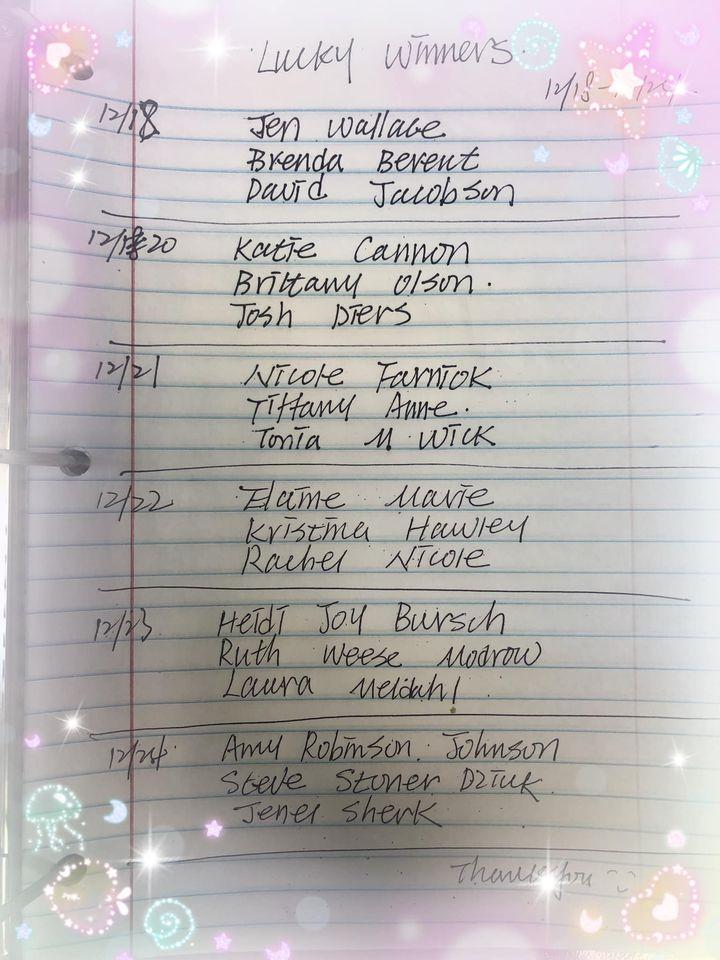 Lucky Winners.
12/18 - 12/24.
12/18 Jen Wallace
Brenda Berent
David Jacobson
12/20 Katie Cannon
Brittany Olson.
Josh Diers
12/21 Nicole Farniok
Tiffany Anne.
Tonia M Wick
12/22 Elaine Marie
Kristina Hawley
Rachel Nicole
12/23 Heidi Joy Bursch
Ruth Weese Modrow
Laura Meldahl
12/24. Amy Robinson Johnson
Steve Stoner Dziuk
Jenel Sherk
Thank you